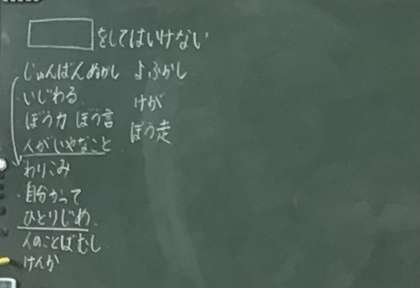 をしてはいけない
じゅんばんぬかし よふかし
・いじわる けが
ぼう力 ぼう言 ぼう走
人がいやなこと
わりこみ
・自分かって
ひとりじめ
人のことばむし
けんか